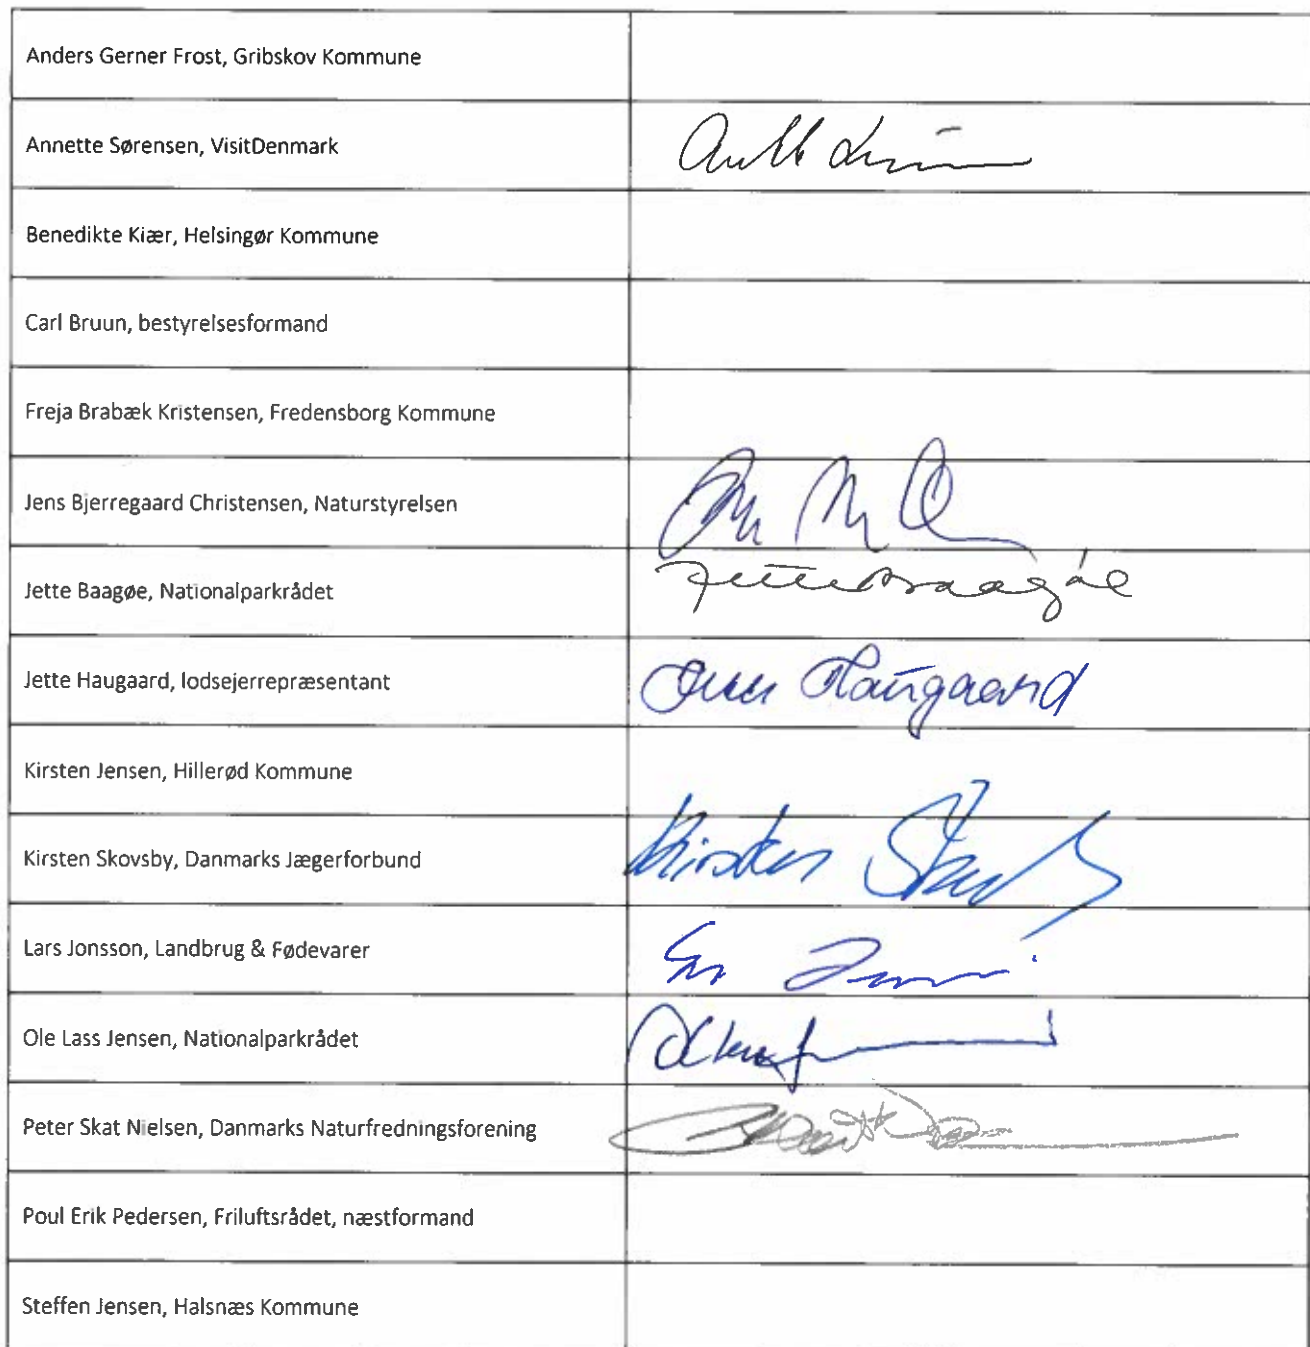 Anders Gerner Frost, Gribskov Kommune
Annette Sørensen, VisitDenmark
Benedikte Kiær, Helsingør Kommune
Carl Bruun, bestyrelsesformand
Freja Brabæk Kristensen, Fredensborg Kommune
Jens Bjerregaard Christensen, Naturstyrelsen
Jette Baagøe, Nationalparkrådet Jette Baagøe
Jette Haugaard, lodsejerrepræsentant Haugaard
Kirsten Jensen, Hillerød Kommune
Kirsten Skovsby, Danmarks Jægerforbund Kirsten
Lars Jonsson, Landbrug & Fødevarer
Ole Lass Jensen, Nationalparkrådet
Peter Skat Nielsen, Danmarks Naturfredningsforening
Poul Erik Pedersen, Friluftsrådet, næstformand
Steffen Jensen, Halsnæs Kommune